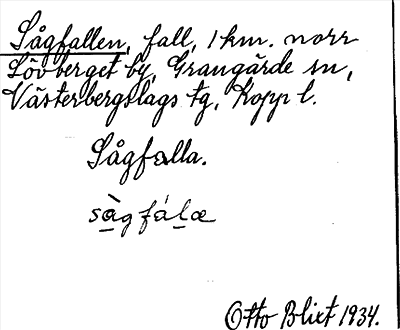 Sågfallen, fall, 1 km. norr
Lövberget by, Grangärde sn,
Västerbergslags tg, Kopp l.
Sågfalla.
sàgfála
Otto Blixt 1934.